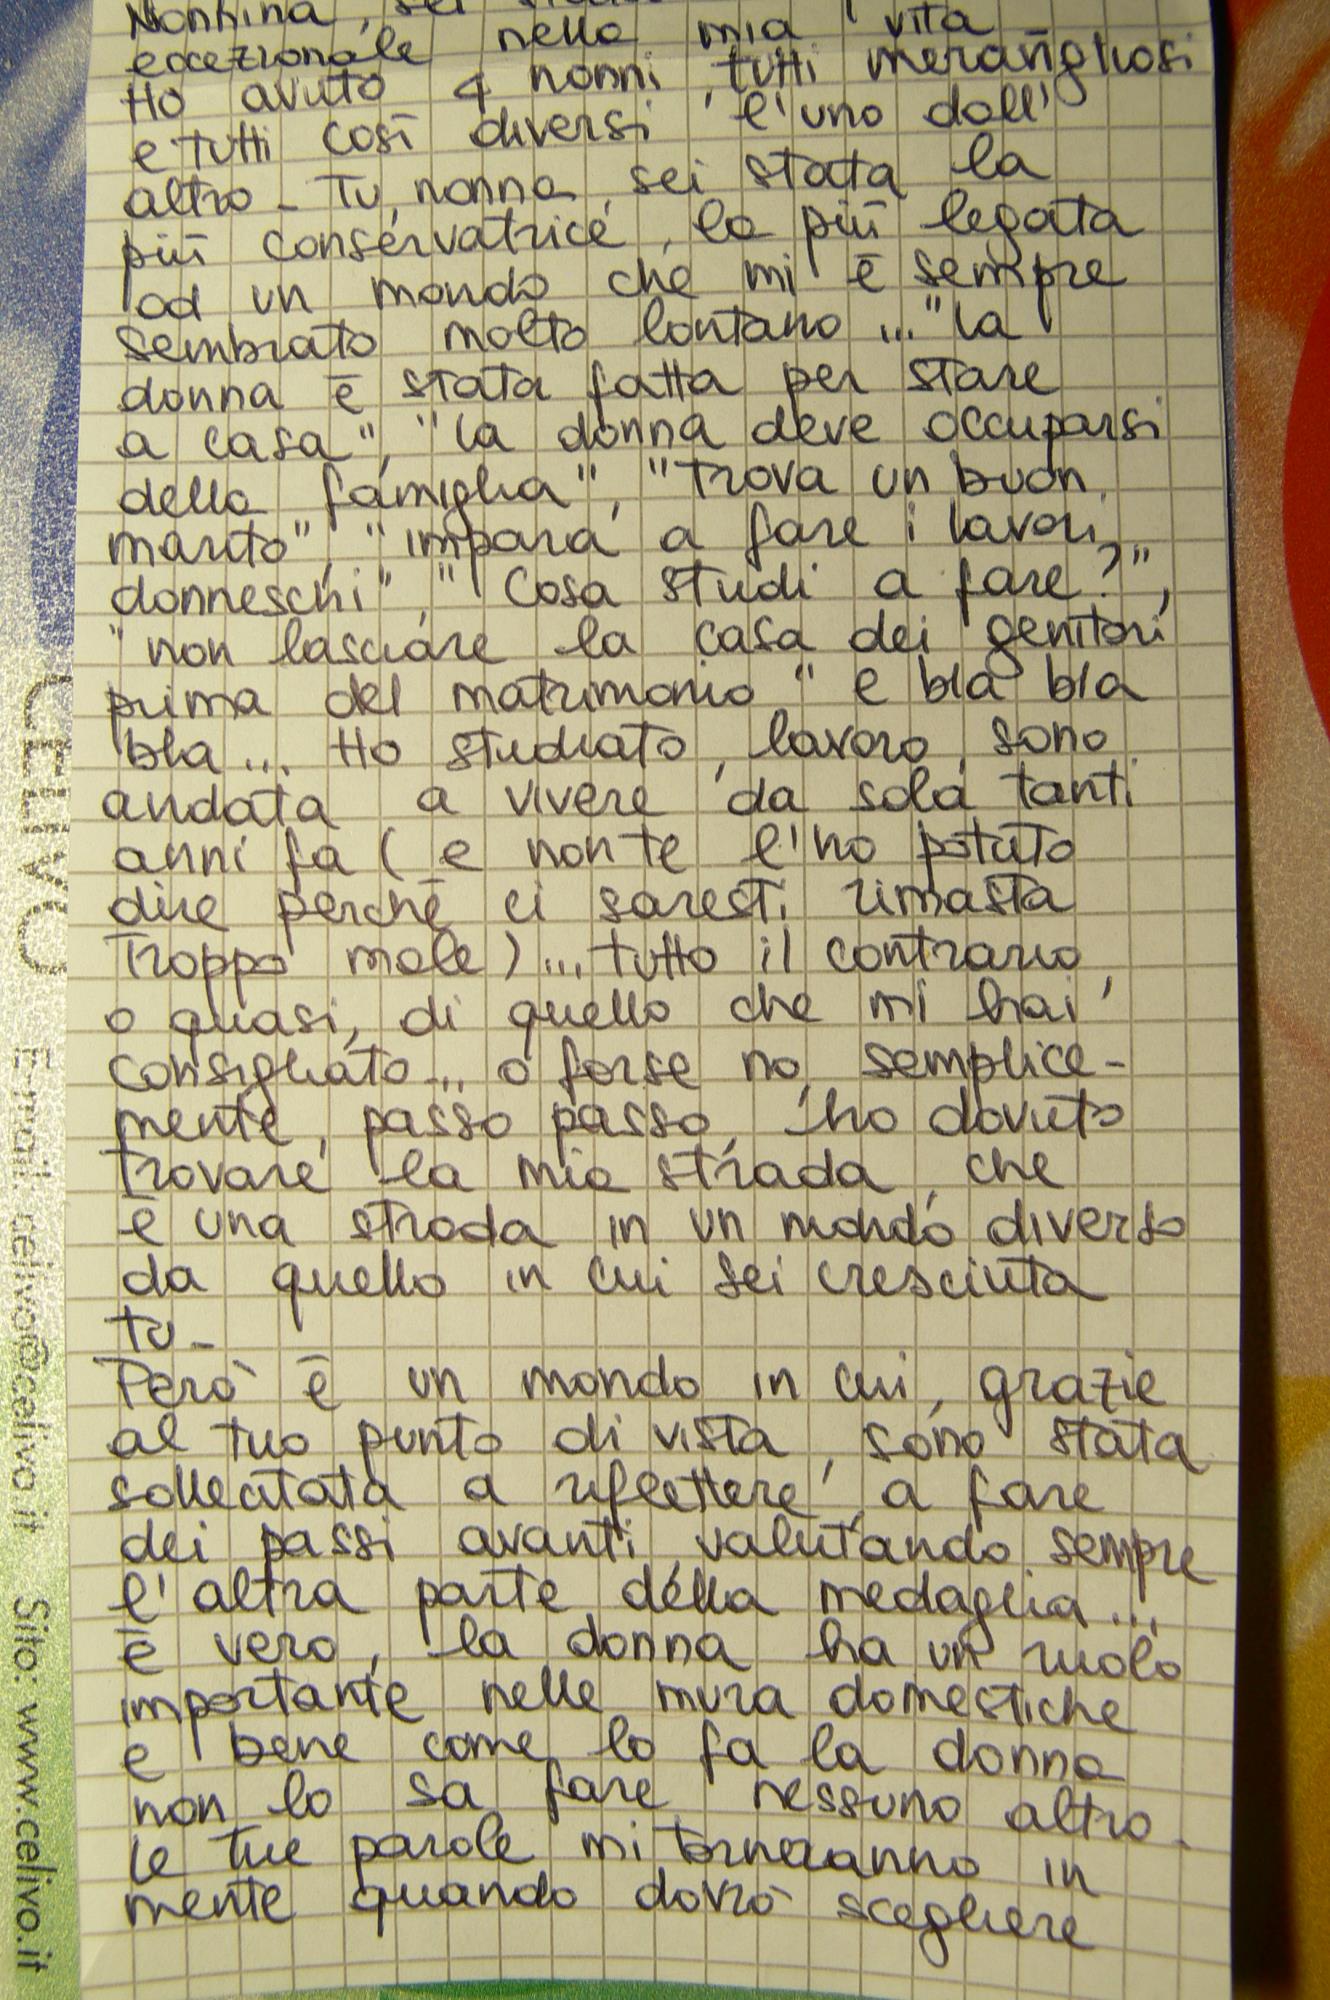 Nonnina, sei
eccezionale nella mia vita
Ho avuto 4 nonni, tutti meravigliosi
e tutti così diversi l'uno dall'
altro - Tu, nonna, sei stata la
più conservatrice, la più legata
ad un mondo che mi è sempre
sembrato molto lontano ... "la
donna è stata fatta per stare
a casa", "la donna deve occuparsi
della famiglia", "trova un buon
marito", "impara a fare i lavori
donneschi", "Cosa studi a fare?",
"non lasciare la casa dei genitori
prima del matrimonio" e bla bla
bla ... Ho studiato, lavoro, sono
andata a vivere da sola tanti
anni fa (e non te l'ho potuto
dire perché ci saresti rimasta
troppo male) ... tutto il contrario,
o quasi, di quello che mi hai
consigliato ... o forse no, semplice-
mente, passo passo, ho dovuto
trovare la mia strada, che
è una strada in un mondo diverso
da quello in cui sei cresciuta
tu -
Però è un mondo in cui, grazie
al tuo punto di vista, sono stata
sollecitata a riflettere, a fare
dei passi avanti, valutando sempre
l'altra parte della medaglia ...
è vero, la donna ha un ruolo
importante nelle mura domestiche
e bene come lo fa la donna
non lo sa fare nessuno altro -
le tue parole mi torneranno in
mente quando dovrò scegliere
CELIVO E-mail: celivo@celivo.it Sito: www.celivo.it